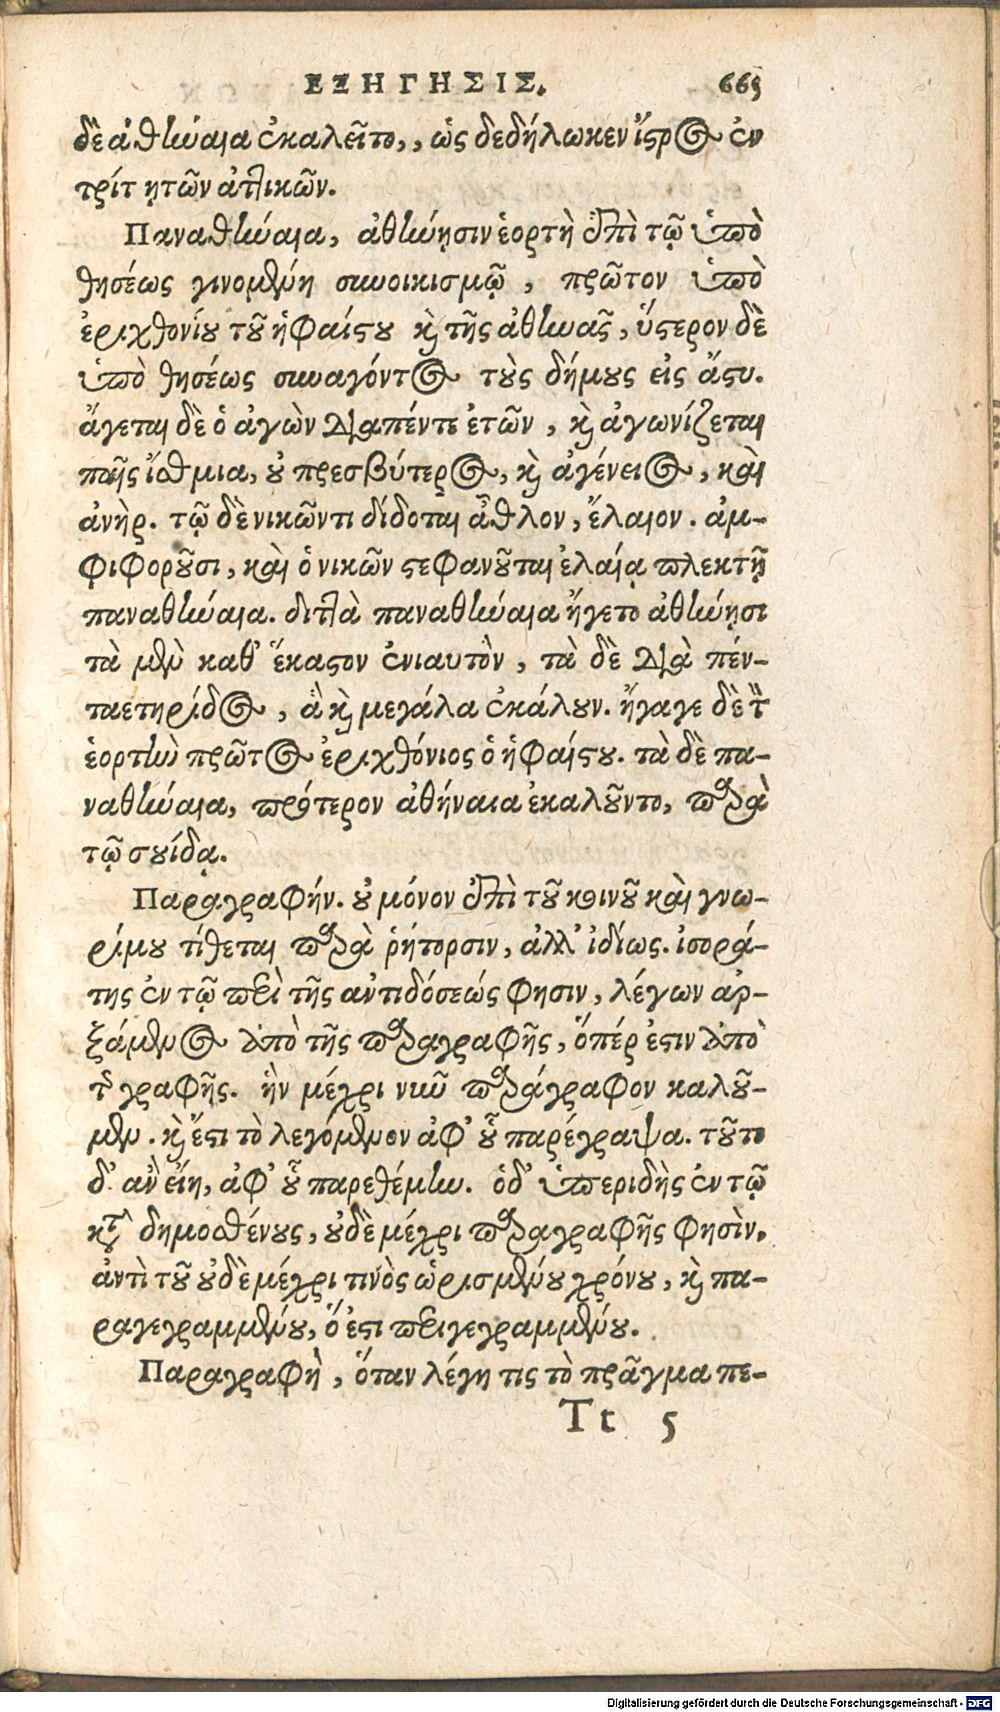 ΕΞΗΓΗΣΙΣ. 665
δὲ ἀθήναια ἐκαλεῖτο,, ὡς δεδήλωκεν ἴστρος ἐν
τρίτ ῃτῶν ἀττικῶν.
Παναθήναια, ἀθήνῃσιν ἑορτὴ ἐπὶ τῷ ὑπὸ
θησέως γινομένη συνοικισμῷ, πρῶτον ὑπὸ
ἐριχθονίου τοῦ ἡφαίστου καὶ τῆς ἀθηνᾶς, ὕστερον δὲ
ὑπὸ θησέως συναγόντος τοὺς δήμους εἰς ἄστυ.
ἄγεται δὲ ὁ ἀγὼν διαπέντε ἐτῶν, καὶ ἀγωνίζεται
παῖς ἴσθμια, οὐ πρεσβύτερος, καὶ ἀγένειος, καὶ
ἀνὴρ. τῷ δὲ νικῶντι δίδοται ἆθλον, ἔλαιον. ἀμ-
φιφοροῦσι, καὶ ὁ νικῶν στεφανοῦται ἐλαίᾳ πλεκτῇ
παναθήναια. διττὰ παναθήναια ἤγετο ἀθήνῃσι
τὰ μὲν καθ’ ἕκαστον ἐνιαυτὸν, τὰ δὲ διὰ πέν-
ταετηρίδος, ἃ καὶ μεγάλα ἐκάλουν. ἤγαγε δὲ τὴν
ἑορτὴν πρῶτος ἐριχθόνιος ὁ ἡφαίστου. τὰ δὲ πα-
ναθήναια, πρότερον ἀθήναια ἐκαλοῦντο, παρὰ
τῷ σουίδᾳ.
Παραγραφήν. οὐ μόνον ἐπὶ τοῦ κοινοῦ καὶ γνω-
ρίμου τίθεται παρὰ ῥήτορσιν, ἀλλ’ ἰδίως. ἰσοράτης ἐν τῷ περὶ τῆς αντιδόσεώς φησιν, λέγων ἀρ-
ξάμενος ἀπὸ τῆς παραγραφῆς, ὅπέρ ἐστιν ἀπὸ
τῆς γραφῆς. ἣν μέχρι νῦν παράγραφον καλοῦ-
μεν. καὶ ἔστι τὸ λεγόμενον ἀφ’ οὗ παρέγραψα. τοῦτο
δ’ ἂν εἴη, ἀφ’ οὗ παρεθέμην. ὁδ’ ὑπεριδὴς ἐν τῷ
κατὰ δημοσθένους, οὐδὲ μέχρι παραγραφῆς φησὶν.
ἀντὶ τοῦ οὐδὲ μέχρι τινὸς ὡρισμένου χρόνου, καὶ πα-
ραγεγραμμένου, ὅ ἐστι περιγεγραμμένου.
Παραγραφὴ, ὅταν λέγῃ τις τὸ πρᾶγμα πε-
Tt 5
Digitalisierung gefördert durch die Deutsche Forschungsgemeinschaft - DFG